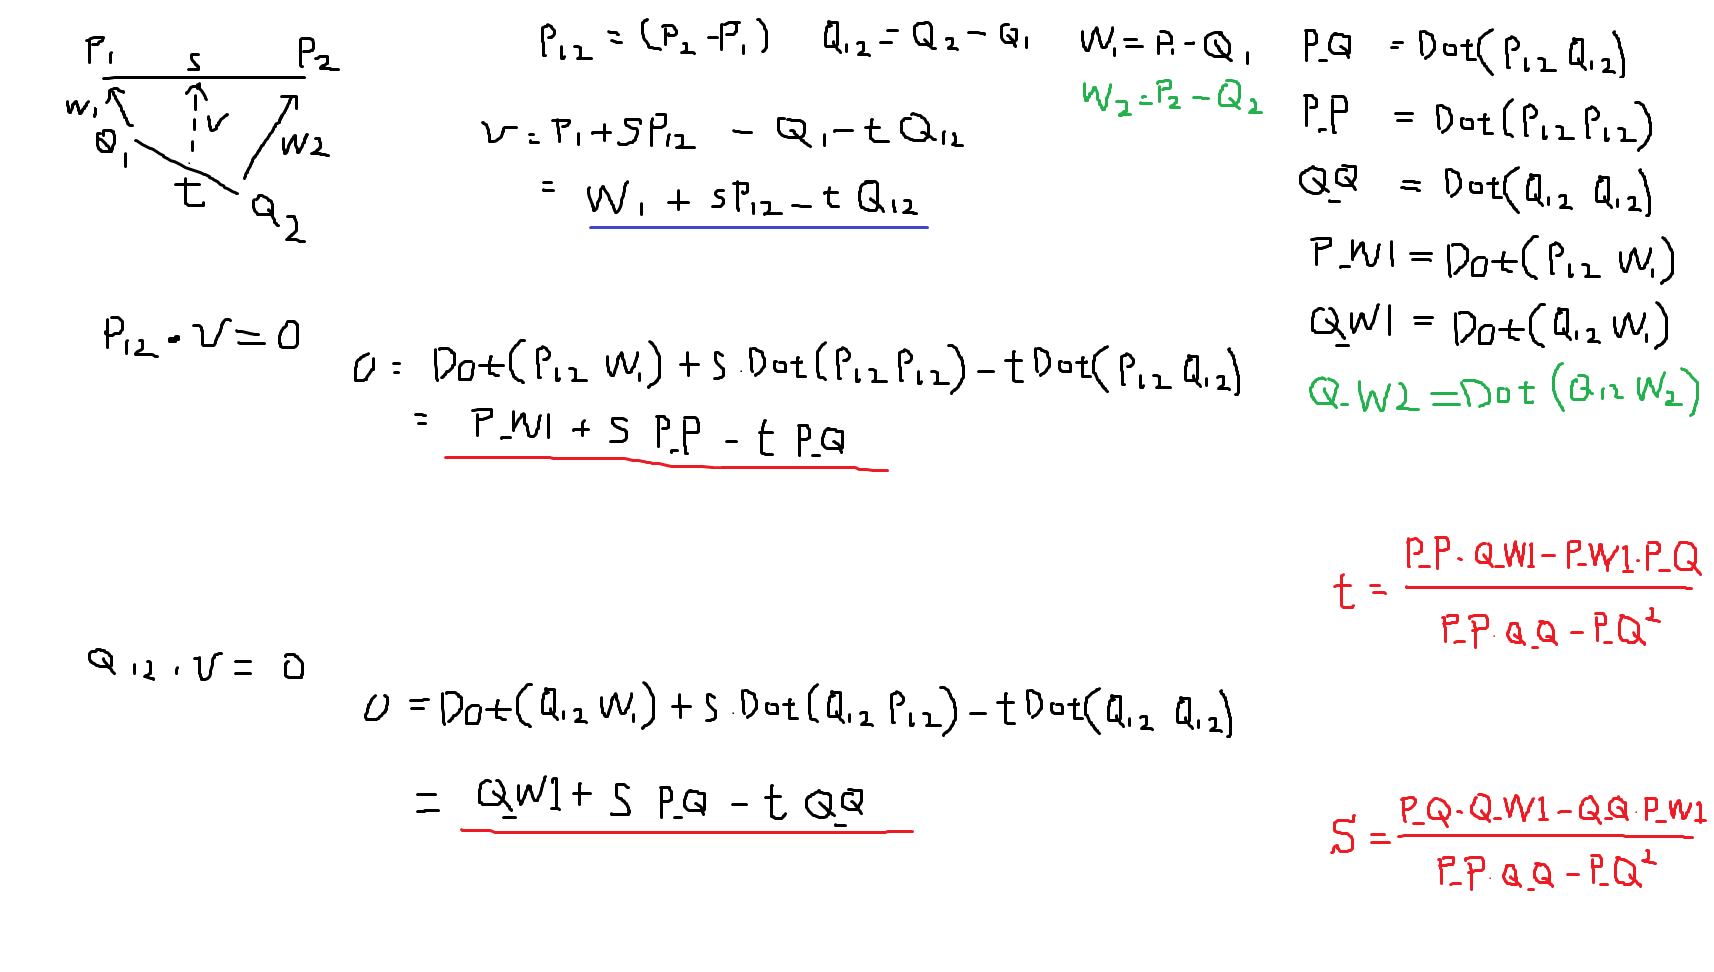 P₁ s P₂
w₁ v w2
Q₁ t Q₂
P₁₂ = (P₂ - P₁) Q₁₂ = Q₂ - Q₁ W₁ = P₁ - Q₁
W₂ = P₂ - Q₂
v = P₁ + SP₁₂ - Q₁ - t Q₁₂
= W₁ + sP₁₂ - t Q₁₂
P_Q = Dot(P₁₂ Q₁₂)
P_P = Dot(P₁₂ P₁₂)
Q_Q = Dot(Q₁₂ Q₁₂)
P_W1 = Dot(P₁₂ W₁)
Q_W1 = Dot(Q₁₂ W₁)
Q_W2 = Dot(Q₁₂ W₂)
P₁₂ · v = 0
0 = Dot(P₁₂ W₁) + s · Dot(P₁₂ P₁₂) - t Dot(P₁₂ Q₁₂)
= P_W1 + s P_P - t P_Q
t = P_P · Q_W1 - P_W1 · P_Q
P_P · Q_Q - P_Q²
Q₁₂ · v = 0
0 = Dot(Q₁₂ W₁) + s · Dot(Q₁₂ P₁₂) - t Dot(Q₁₂ Q₁₂)
= Q_W1 + s P_Q - t Q_Q
S = P_Q · Q_W1 - Q_Q · P_W1
P_P · Q_Q - P_Q²